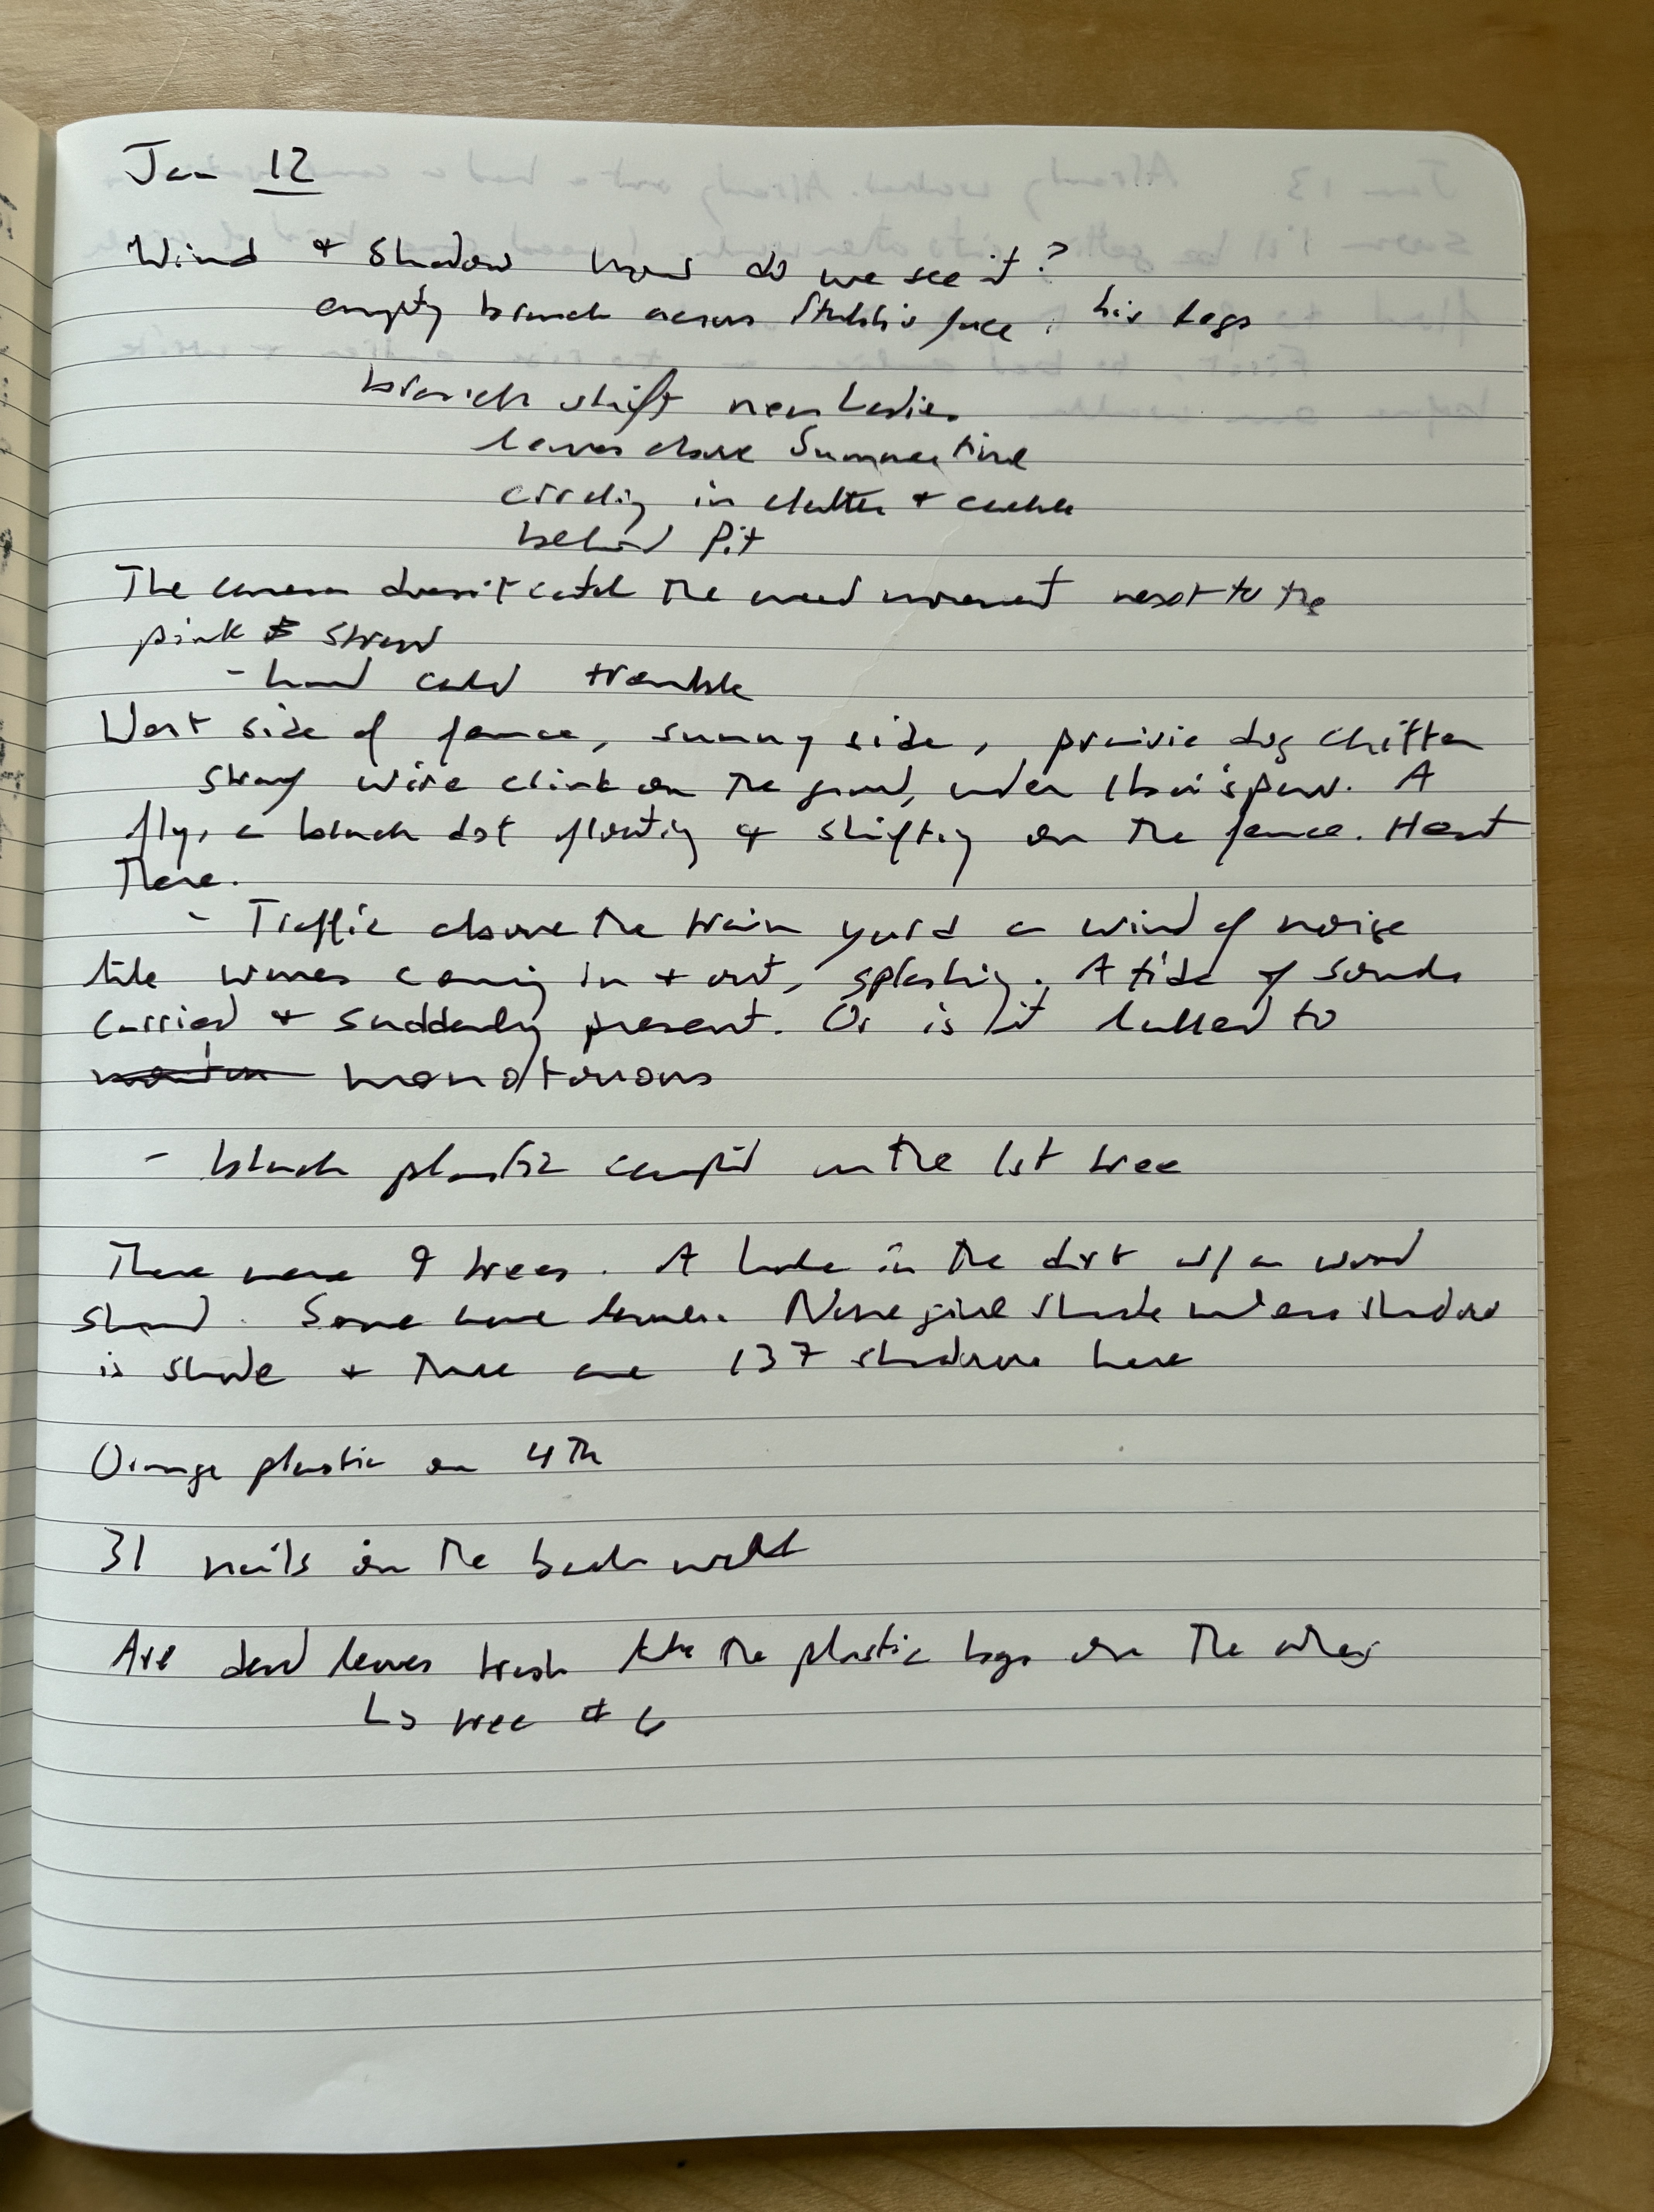 Jan 12
Wind + Shadow how do we see it?
empty branch across Stubbi's face, his legs
branch shift near Ladies
leaves above Summertime
circling in clutter +
behind Pit
The camera doesn't catch the movement next to the
pink straw
- hand cold tremble
West side of fence, sunny side, prairie dog chitter
stray wire clink on the ground, under paw. A
fly, a black dot floating + shifting on the fence. Heat
There.
- Traffic above the train yard a wind of noise
like waves coming in + out, splashing. A tide of sounds
carried + suddenly present. Or is it lulled to
monotonous
- black plastic caught on the 1st tree
There were 9 trees. A hole in the dirt w/ a wood
stand. Some have leaves. None give shade unless shadow
is shade + there are 137 shadows here
Orange plastic on 4th
31 nails on the back wall
Are dead leaves trash like the plastic bags on the other
↳ tree # 6